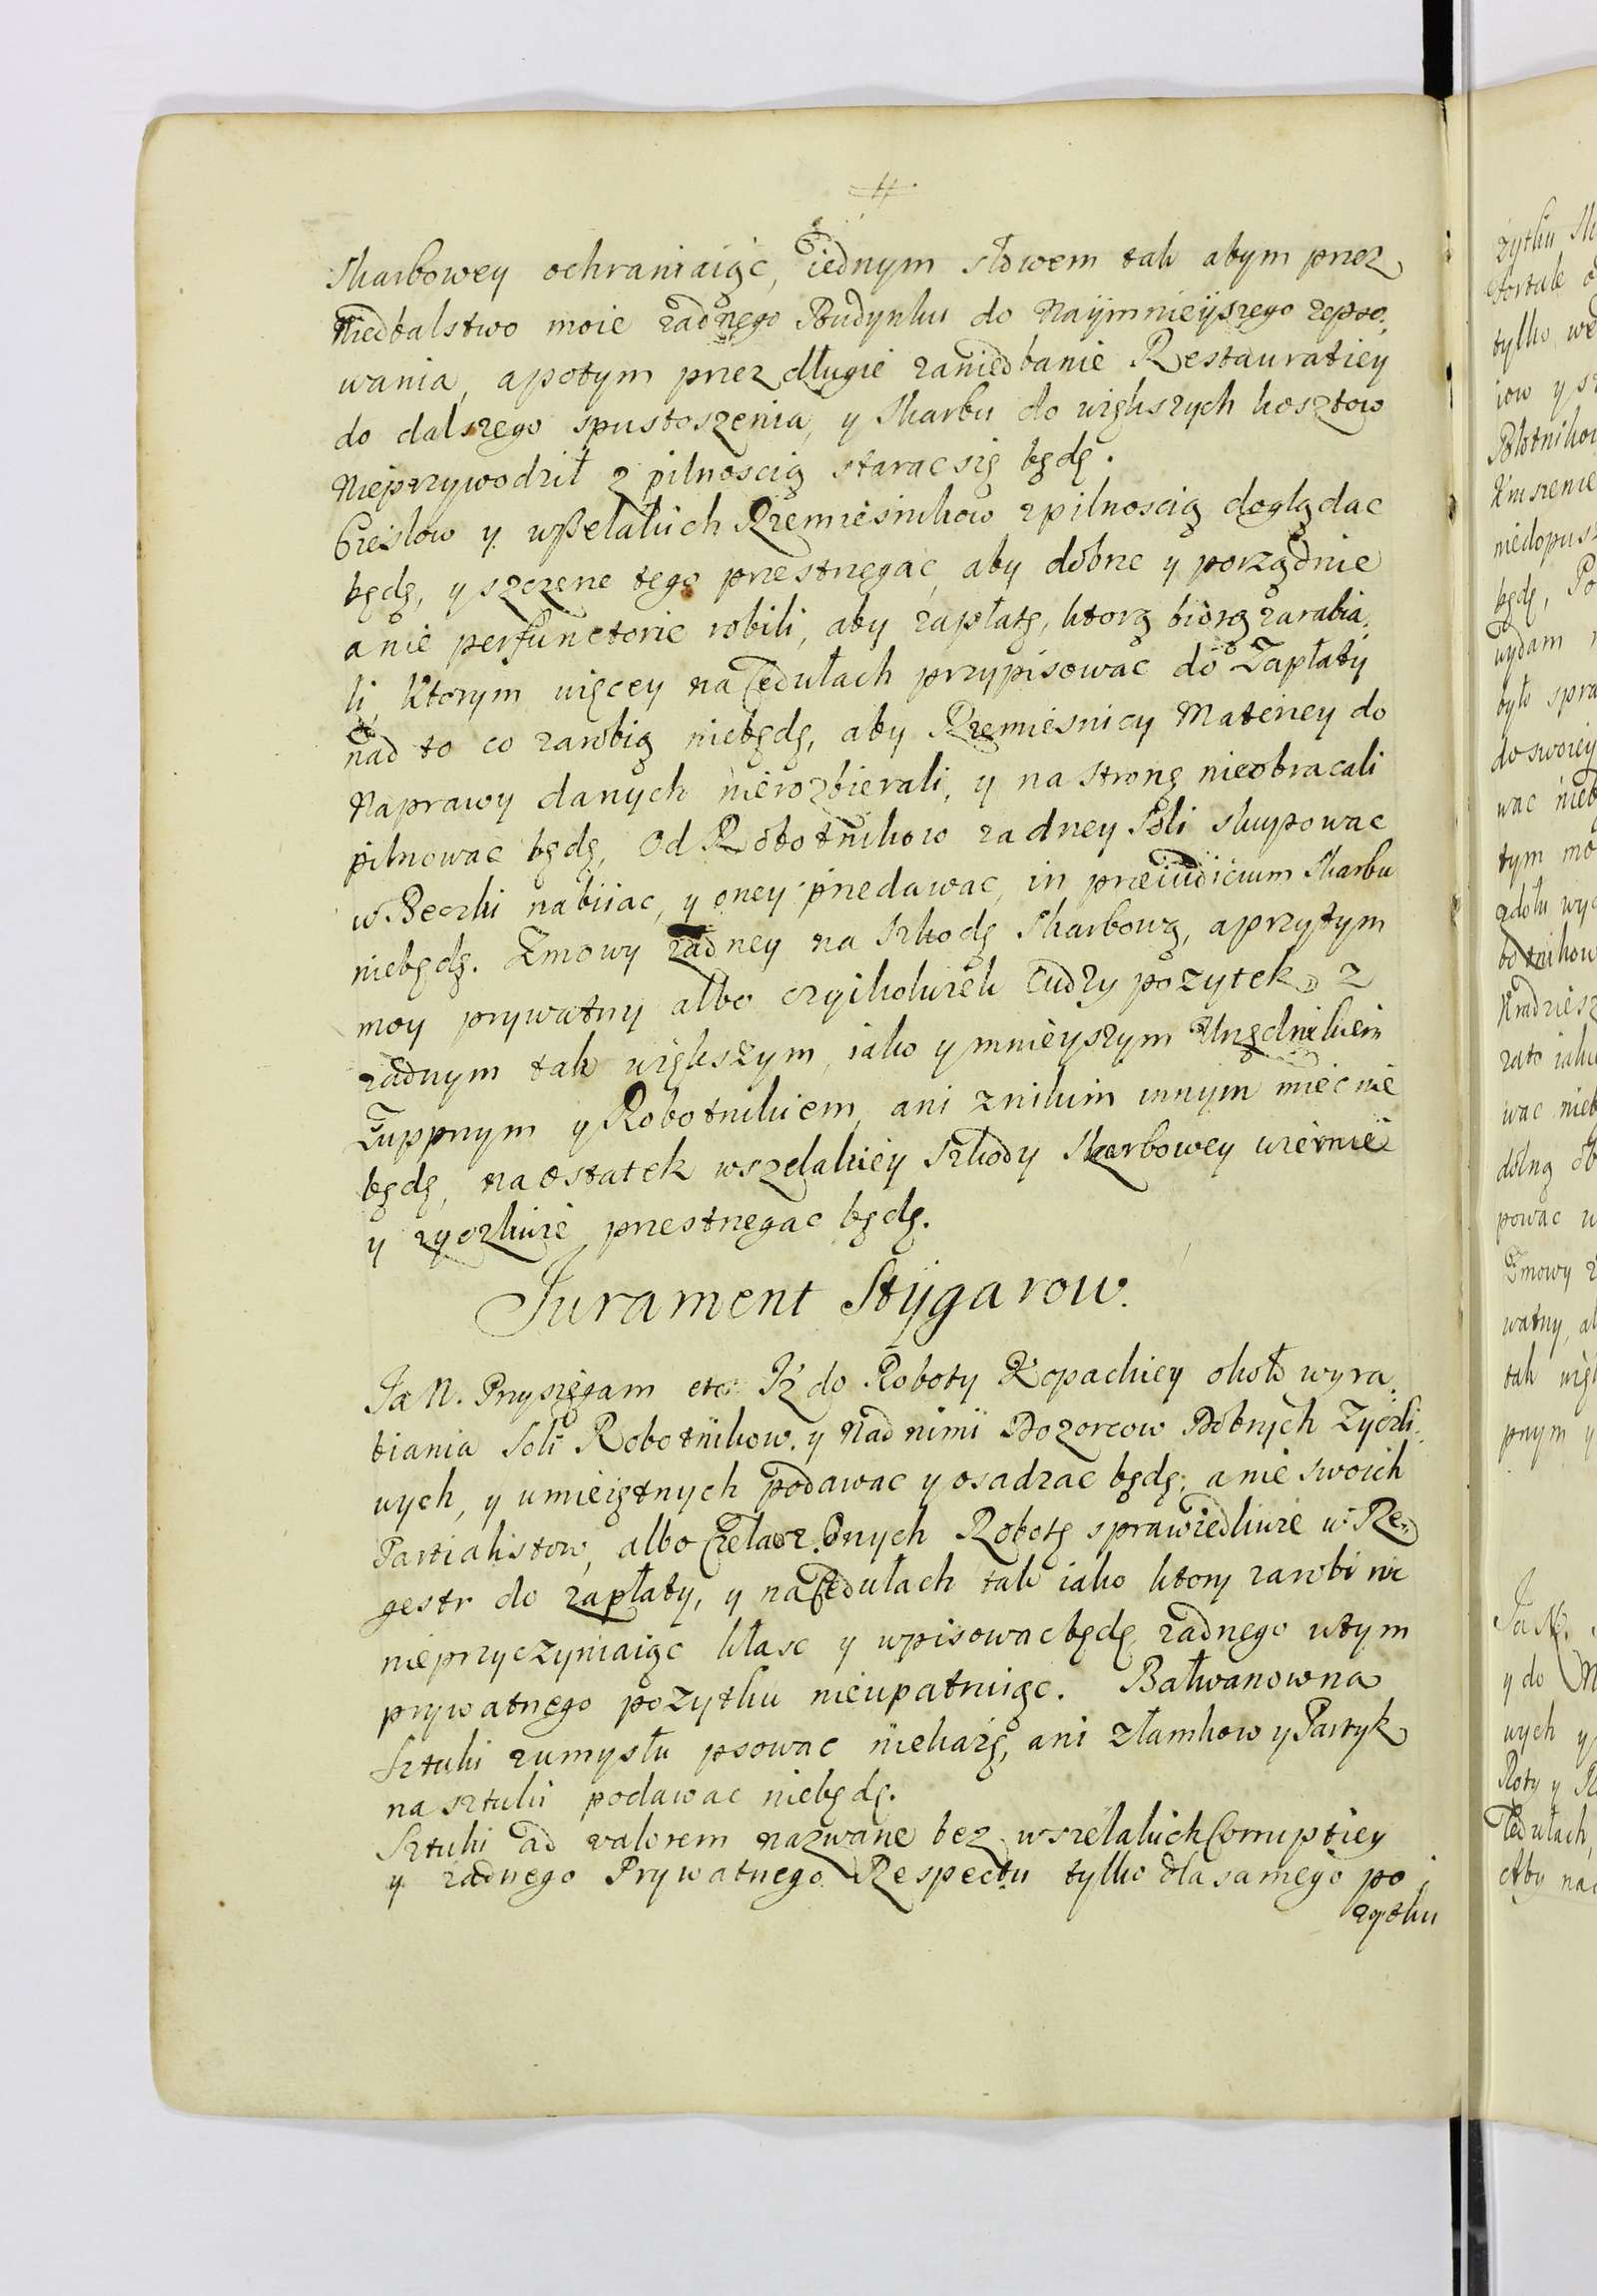 Skarbowey ochraniaiąc, iednym słowem tak abym przez
Niedbalstwo moie zadnego Budynku do Nayimnieyszego zepso,
wania, apotym przez długie zaniedbanie Restauratiey
do dalszego spustoszenia, y Skarbu do większych kosztow
Nieprzywodził z pilnoscią staracsię będę.
Cieslow y wszelakich Rzemiesnikow zpilnoscią doglądac
będę, y szczerze tego przestrzegac, aby dobrze y porządnie
a nie perfunctorie robili, aby zapłatę, ktorą biorą zarabia,
li, Ktorym więcey na Cedułach przypisowac do Zapłaty
nad to co zarobią niebędę, aby Rzemiesnicy Materiey do
Naprawy danych nierozbierali, y na stronę nieobracali
pilnowac będę, Od Robotnikow zadney Soli skupowac
w Beczki nabiiac, y oney przedawac, in praeiudicium Skarbu
niebędę. Zmowy zadney na Szkodę Skarbową, aprzytym
moy prywatny albo czyikolwiek Cudzy pozytek z
zadnym tak większym, iako y mnieyszym Urzędnikiem
Zuppnym y Robotnikiem, ani znikim innym miec nie
będę, na ostatek wszelakiey Szkody Skarbowey wiernie
y zyczliwie przestrzegac będę.
Jurament Stygarow.
Ja N. Przysięgam etc. Iz do Roboty Kopackiey około wyra,
biania Soli Robotnikow y nad nimi Dozorcow Dobrych Zyczli,
wych, y umieiętnych podawac y osadzac będę, a nie swoich
Partialistow, albo Czeladz. Onych Robotę sprawiedliwie w Re,,
gestr do zapłaty, y na Cedułach tak iako ktory zarobi nic
nieprzyczyniaiąc kłasc y wpisowac będę zadnego wtym
prywatnego pozytku nieupatruiąc. Bałwanow na
Sztuki zumysłu psowac niekażę, ani złamkow y Partyk
na sztuki podawac niebędę.
Sztuki ad valorem nazwane bez wszelakich Corruptiey
y zadnego Prywatnego Respectu tylko dla samego po
zytku
zytku
tylko
iow y
Kruszenie
będę, Po
wydam
było spra
do swoiey
tym mo
Kradziesz
zato iak
Zmowy
watny, al
pnym y
Ja N.
y do
wych y
Cedułach,
Aby na